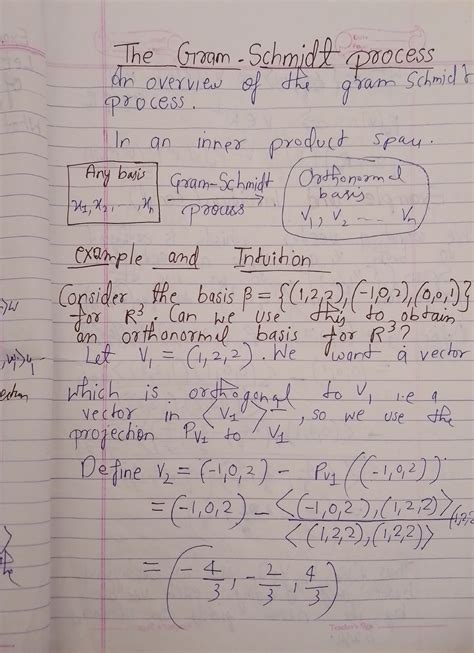 The Gram-Schmidt process
An overview of the gram Schmidt
process.
In an inner product span.
Any basis
x₁, x₂, ..., xₙ
Gram-Schmidt
process
Orthonormal
basis
V₁, V₂ --- Vₙ
example and Intuition
Consider, the basis β = {(1,2,2),(-1,0,2),(0,0,1)}
for R³. Can we use this to obtain
an orthonormal basis for R³?
Let V₁ = (1,2,2). We want a vector
which is orthogonal to V₁ i.e a
vector in <V₁>⊥, so we use the
projection P_V₁ to V₁
Define V₂ = (-1,0,2) - P_V₁((-1,0,2))
= (-1,0,2) - <(-1,0,2),(1,2,2)> / <(1,2,2),(1,2,2)> (1,2,2)
= (-4/3, -2/3, 4/3)